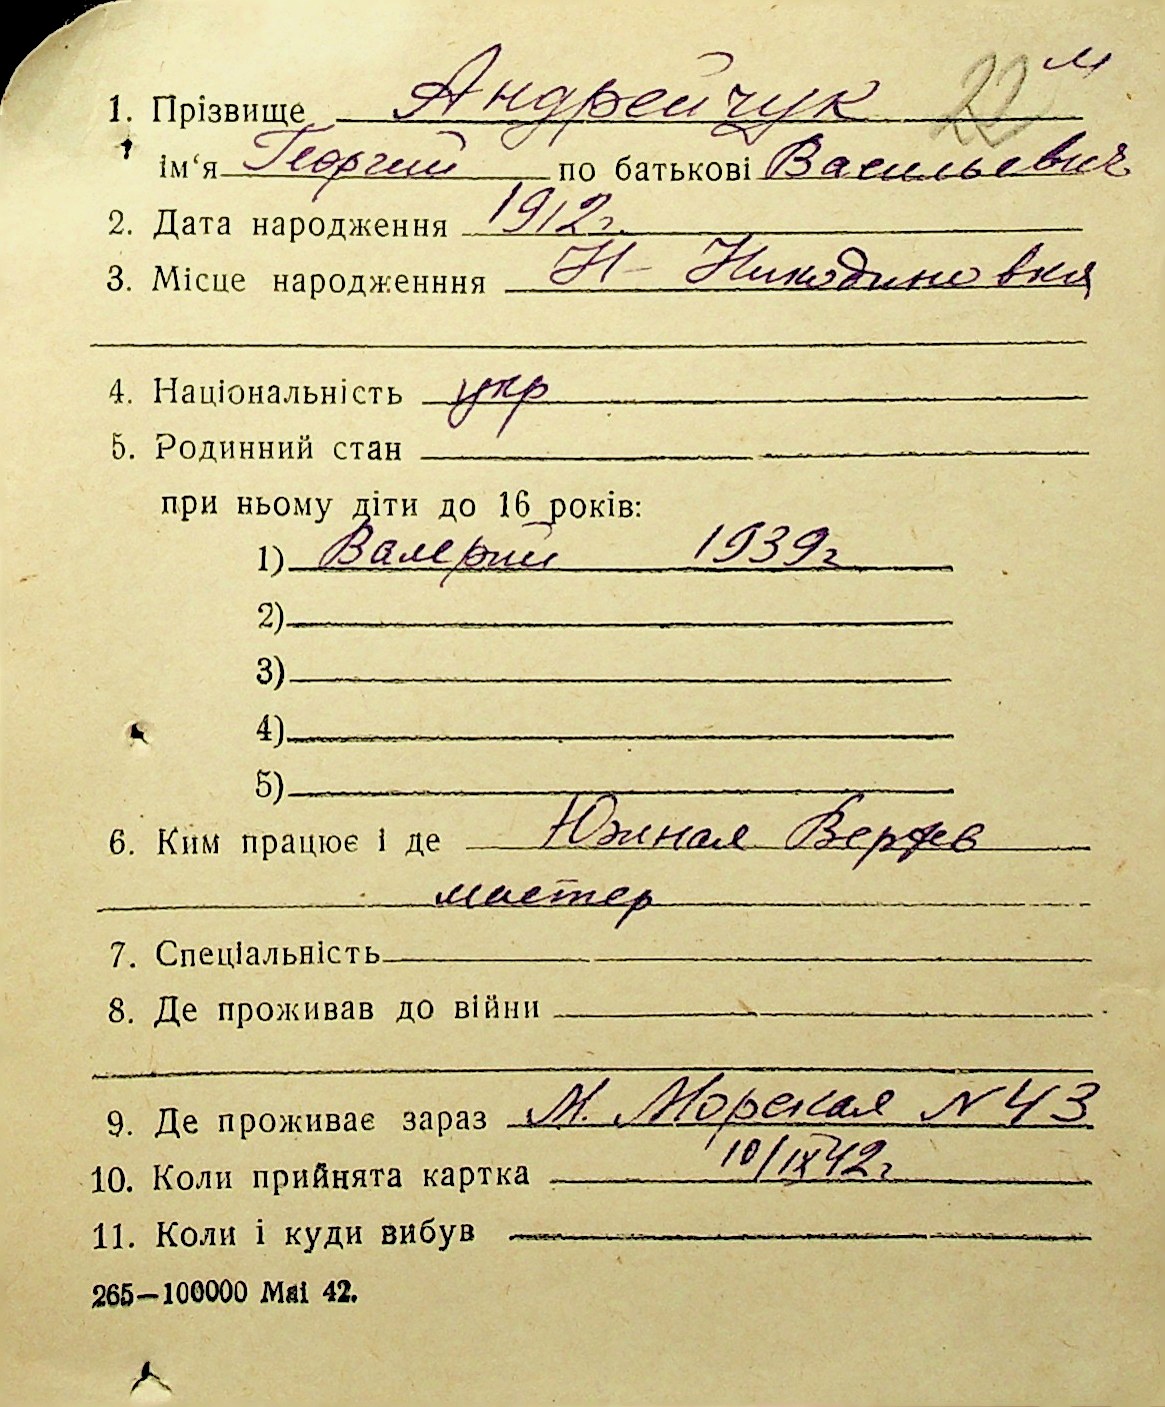 22 м
1. Прізвище Андрейчук
ім‘я Георгий по батькові Васильевич
2. Дата народження 1912 г.
3. Місце народженння Н - Никодимовка
4. Національність укр
5. Родинний стан
при ньому діти до 16 років:
1) Валерий 1939 г
2)
3)
4)
5)
6. Ким працює і де Южная Верфь
мастер
7. Спеціальність
8. Де проживав до війни
9. Де проживає зараз М. Морская N 43
10. Коли прийнята картка 10/IX 42 г
11. Коли і куди вибув
265—100000 Mai 42.